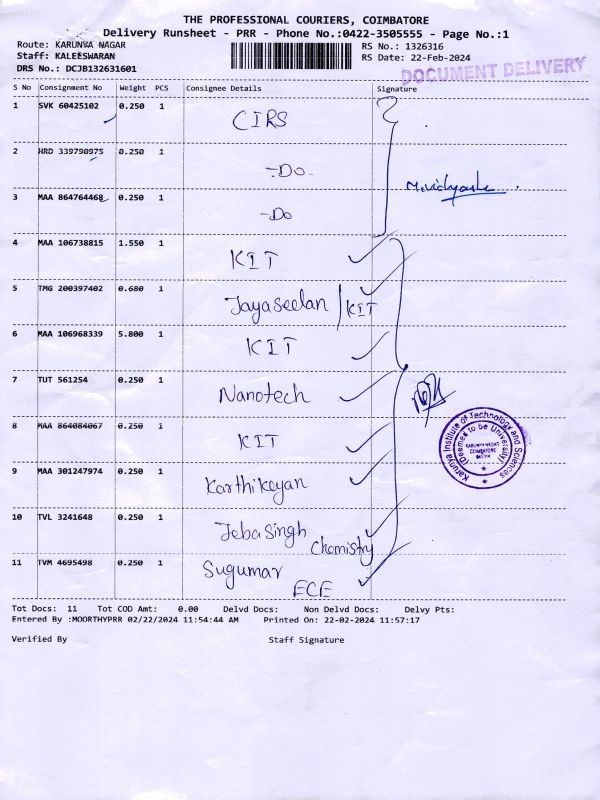 THE PROFESSIONAL COURIERS, COIMBATORE
Delivery Runsheet - PRR - Phone No.:0422-3505555 - Page No.:1
Route: KARUNYA NAGAR
Staff: KALEESWARAN
DRS No.: DCJB132631601
RS No.: 1326316
RS Date: 22-Feb-2024
DOCUMENT DELIVERY
S No Consignment No Weight PCS Consignee Details Signature
1 SVK 60425102 0.250 1 CIRS
2 NRD 339790975 0.250 1 -Do-
3 MAA 864764468 0.250 1 -Do
M.Vidyasha
4 MAA 106738815 1.550 1 KIT
5 TMG 200397402 0.680 1 Jayaseelan / KIT
6 MAA 106968339 5.800 1 KIT
7 TUT 561254 0.250 1 Nanotech
8 MAA 864084067 0.250 1 KIT
9 MAA 301247974 0.250 1 Karthikeyan
10 TVL 3241648 0.250 1 Jeba Singh Chemistry
11 TVM 4695498 0.250 1 Sugumar ECE
Karunya Institute of Technology and Sciences
(Deemed to be University)
KARUNYA NAGAR
COIMBATORE
Tot Docs: 11 Tot COD Amt: 0.00 Delvd Docs: Non Delvd Docs: Delvy Pts:
Entered By :MOORTHYPRR 02/22/2024 11:54:44 AM Printed On: 22-02-2024 11:57:17
Verified By Staff Signature